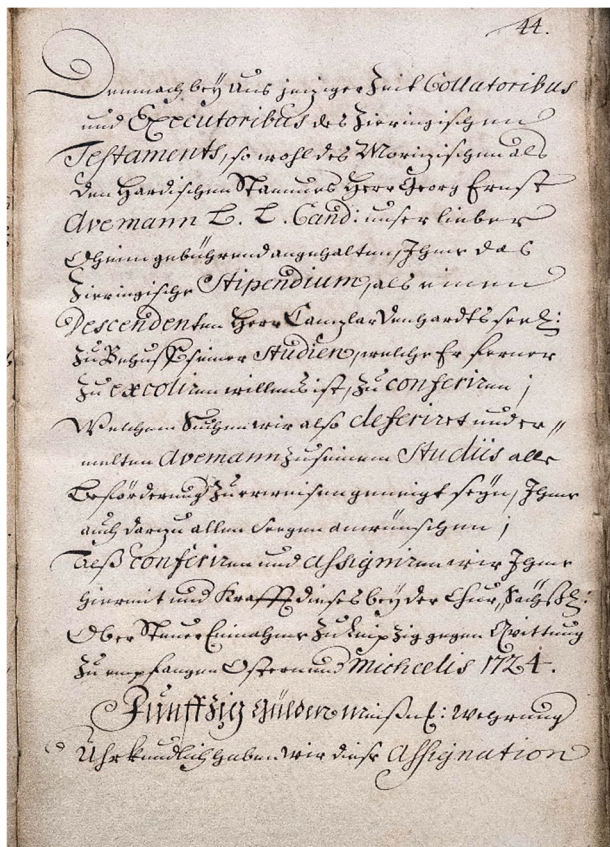 44.
Demnach bey Uns jeziger Zeit Collatoribus
und Executoribus des Zieringischen
Testaments, so wohl des Morizischen als
den Hardischen Stammes Herr Georg Ernst
Avemann L. L. Cand: unser lieber
Oheim gebührend angehalten, Ihme das
Zieringische Stipendium, als einem
Descendenten Herr Canzlar Denhardts seel:
zu Behuff seiner Studien, welche Er ferner
zu excoliren willens ist, zu conferiren;
Welchem Suchen wir also deferiret und er-
melten Avemann zu seinem Studiis alle
Beförderung zu erweisen geneigt seyn, Ihme
auch darzu allen Seegen anwünschen;
Alß conferiren und assigniren wir Ihme
hiermit und Krafft dieses bey der Chur Sächß:
Ober Steuer Einnahme zu Leipzig gegen Qvittung
zu empfangen Ostern und Michaelis 1724.
Funffzig Gülden Meißn: Wehrung
Uhrkundlich haben wir diese Assignation